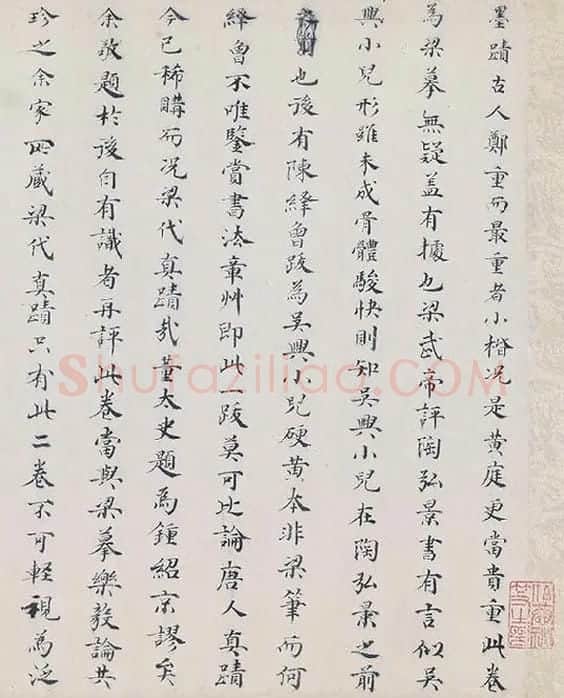 墨蹟古人鄭重而最重者小楷况是黄庭更當貴重此卷
為梁摹無疑盖有據也梁武帝評陶弘景書有言似吳
興小兒形雖未成骨體駿快則知吳興小兒在陶弘景之前
也後有陳繹曾跋為吳興小兒硬黄本非梁筆而何
繹曾不唯鑒賞書法章艸即此一跋莫可比論唐人真蹟
今已稀購而况梁代真蹟哉董太史題為鍾紹京謬矣
余敬題於後自有識者再評此卷當與梁摹樂毅論共
珍之余家所藏梁代真蹟只有此二卷不可輕視為泛
Shufaziliao.COM